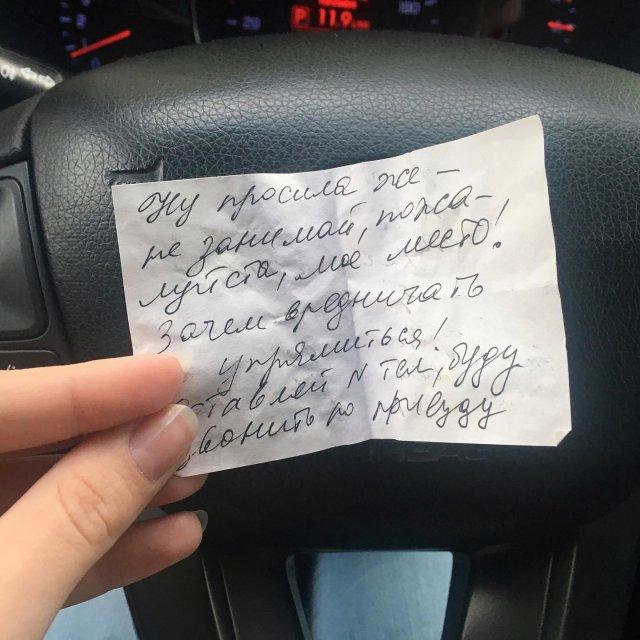 P 11.9
Ну просила же –
не занимай, пожа-
луйста, мое место!
Зачем вредничать
упрямиться!
ставляй N тел, буду
звонить по приезду